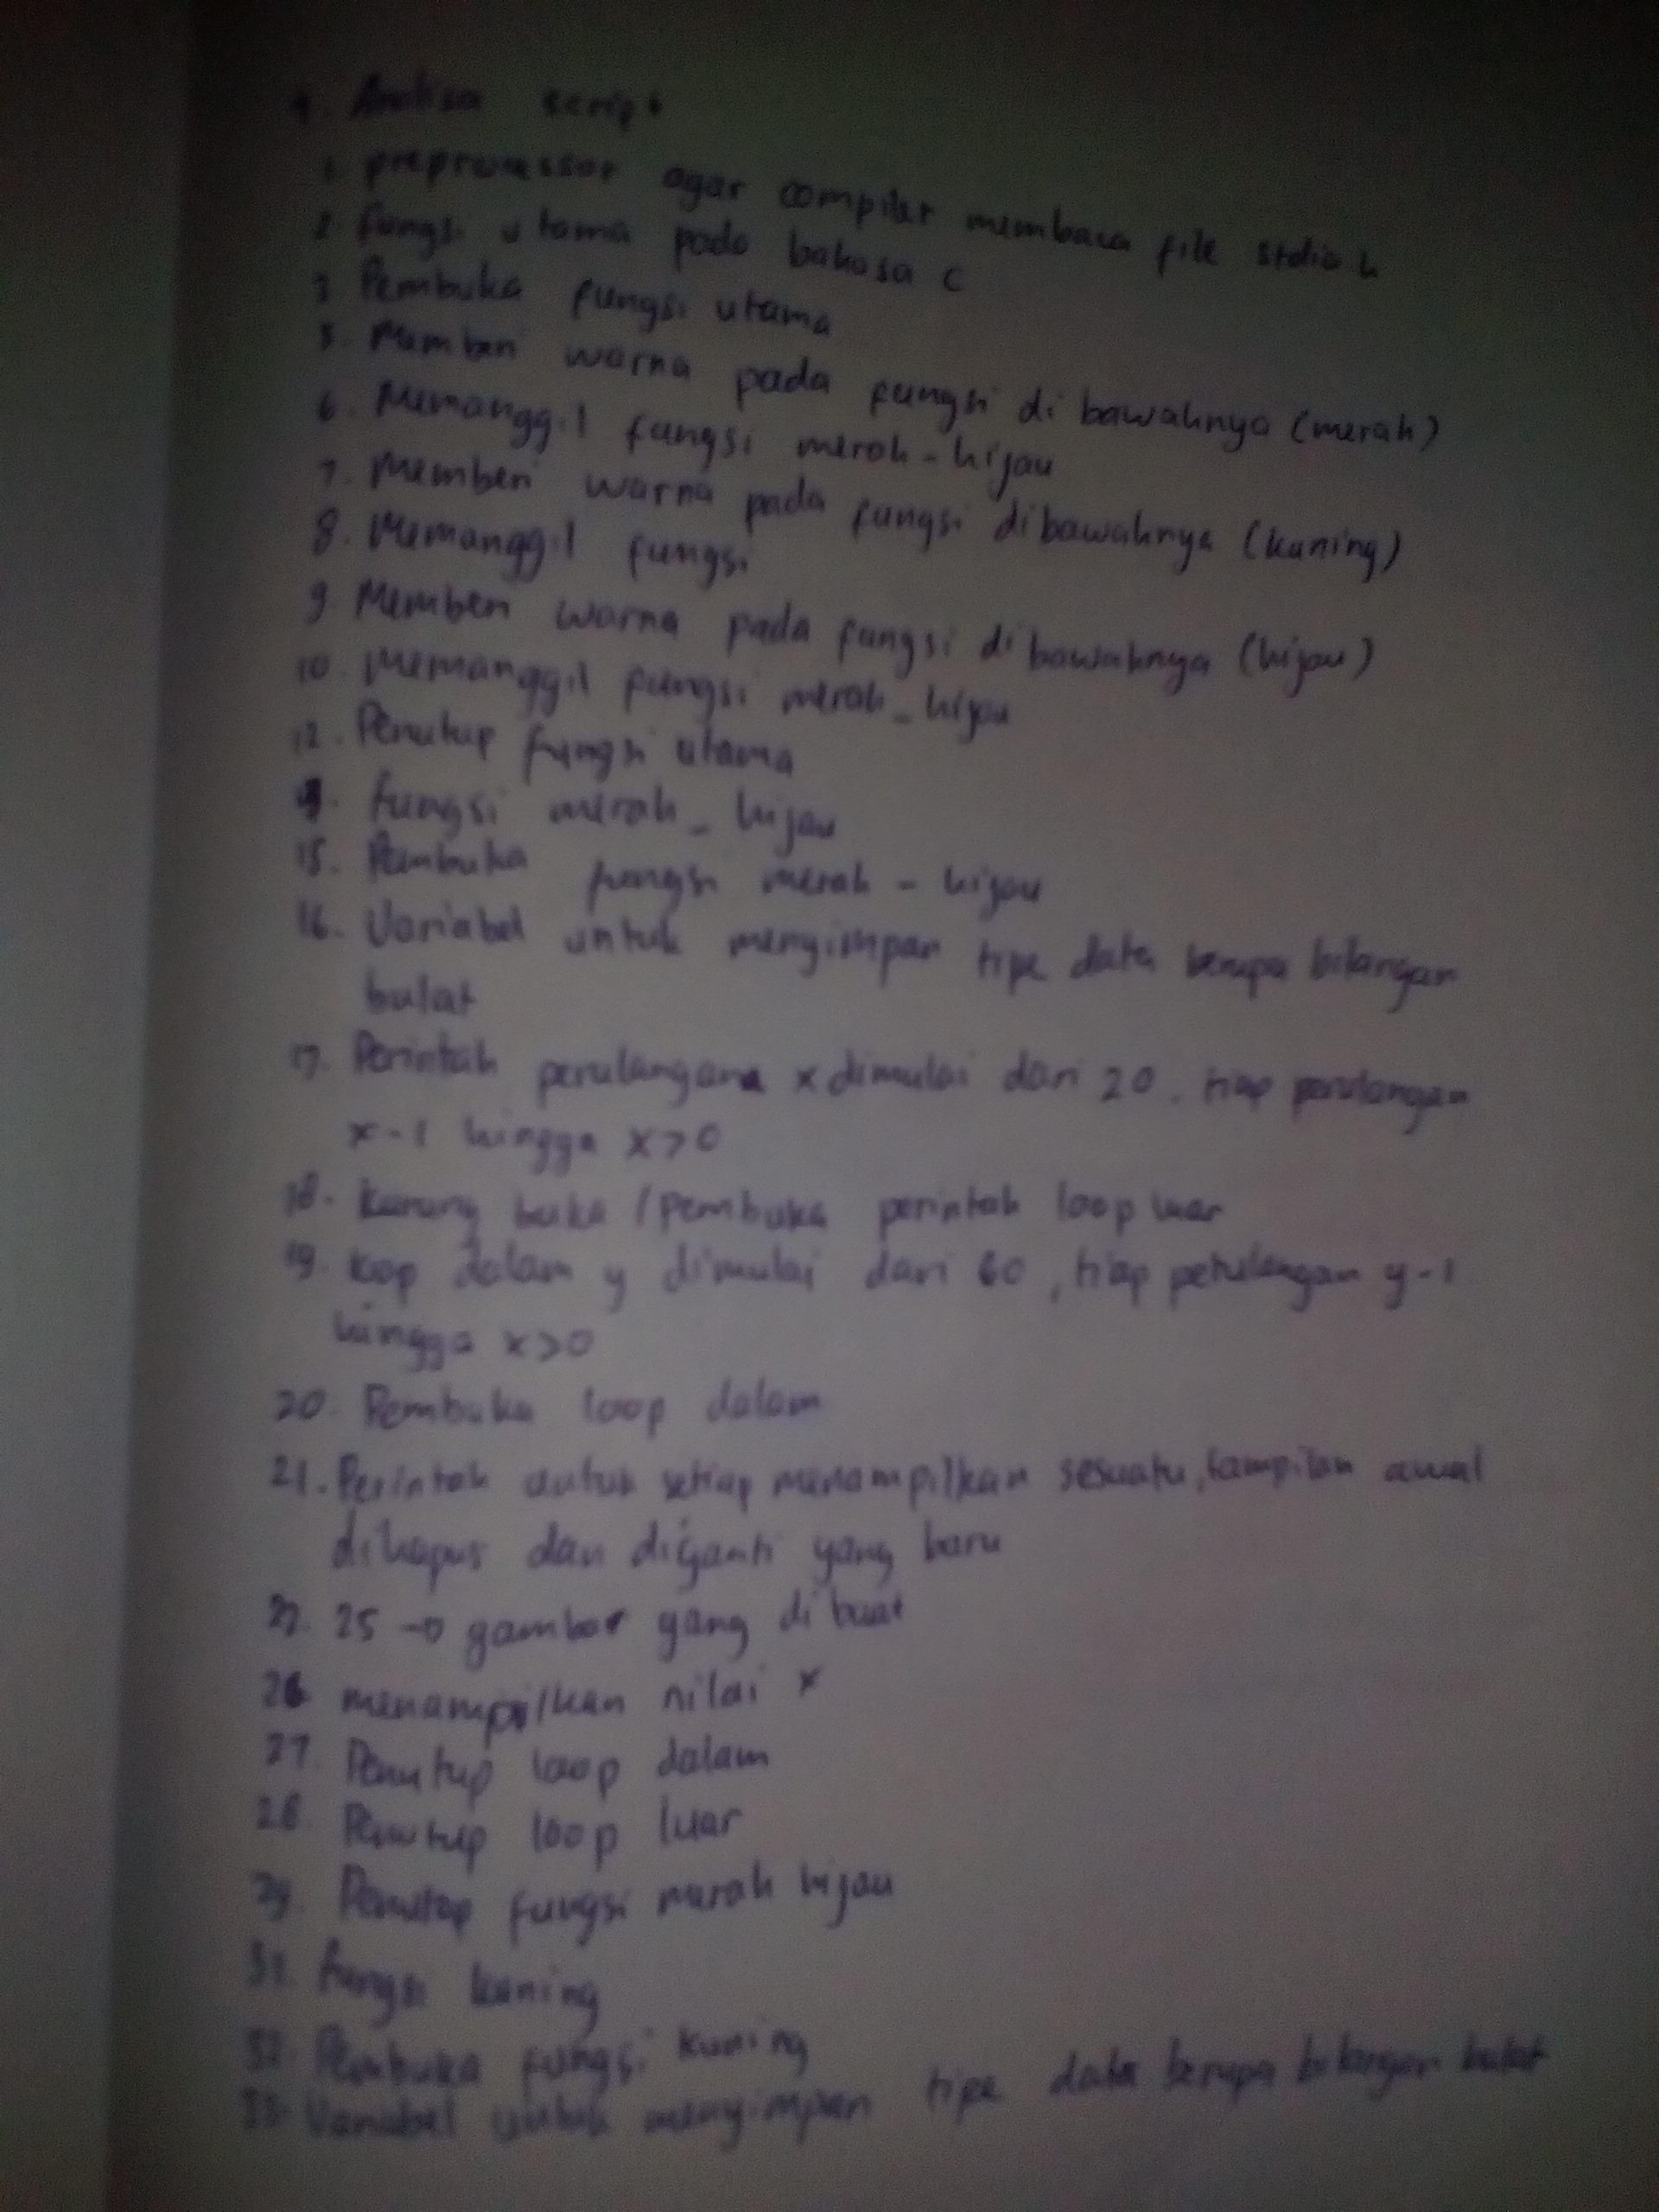 4. Analisa script
1. preprocessor agar compiler membaca file stdio h
2. fungsi utama pada bahasa c
3. Pembuka fungsi utama
5. Memberi warna pada fungsi di bawahnya (merah)
6. Memanggil fungsi merah-hijau
7. Memberi warna pada fungsi dibawahnya (kuning)
8. Memanggil fungsi
9. Memberi warna pada fungsi dibawahnya (hijau)
10. Memanggil fungsi merah_hijau
12. Penutup fungsi utama
fungsi merah_hijau
15. Pembuka fungsi merah-hijau
16. Variabel untuk menyimpan tipe data berupa bilangan
bulat
17. Perintah perulangan x dimulai dari 20, tiap perulangan
x-1 hingga x>0
18. Kurung buka / pembuka perintah loop luar
19. Loop dalam y dimulai dari 60, tiap perulangan y-1
hingga x>0
20. Pembuka loop dalam
21. Perintah untuk setiap menampilkan sesuatu, tampilan awal
dihapus dan diganti yang baru
22. 25 → gambar yang dibuat
26 menampilkan nilai x
27. Penutup loop dalam
28. Penutup loop luar
29. Penutup fungsi merah hijau
31. fungsi kuning
32. Pembuka fungsi kuning
33. Variabel untuk menyimpan tipe data berupa bilangan bulat